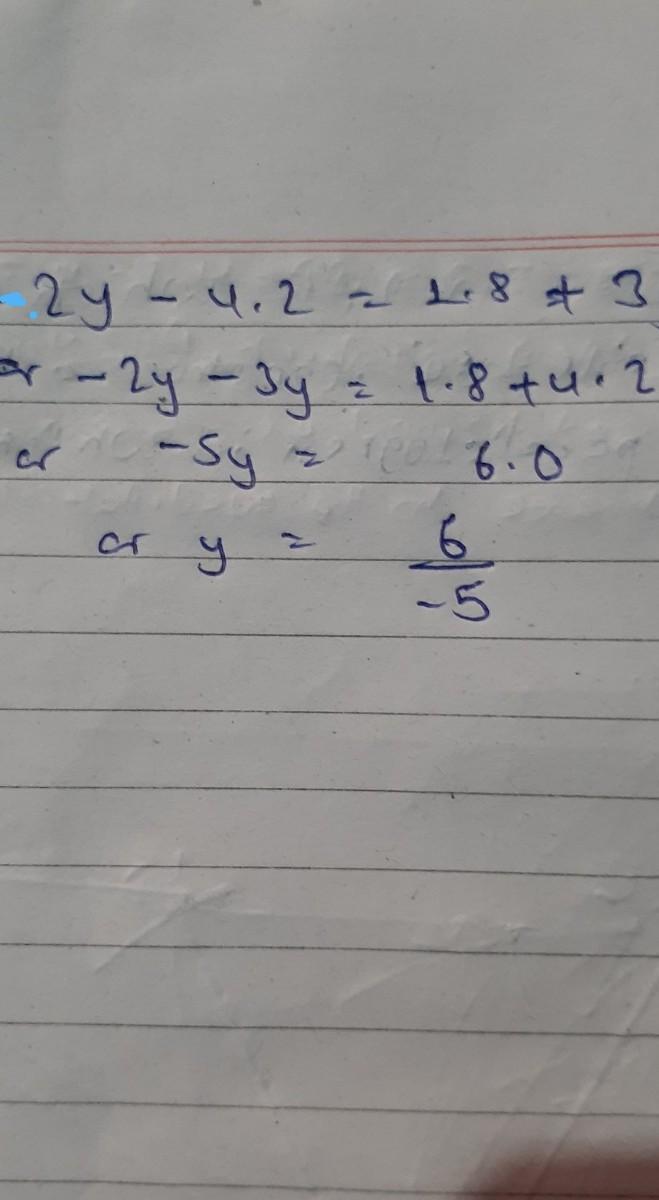 -2y - 4.2 = 1.8 + 3
or -2y - 3y = 1.8 + 4.2
or -5y = 6.0
or y = 6/-5